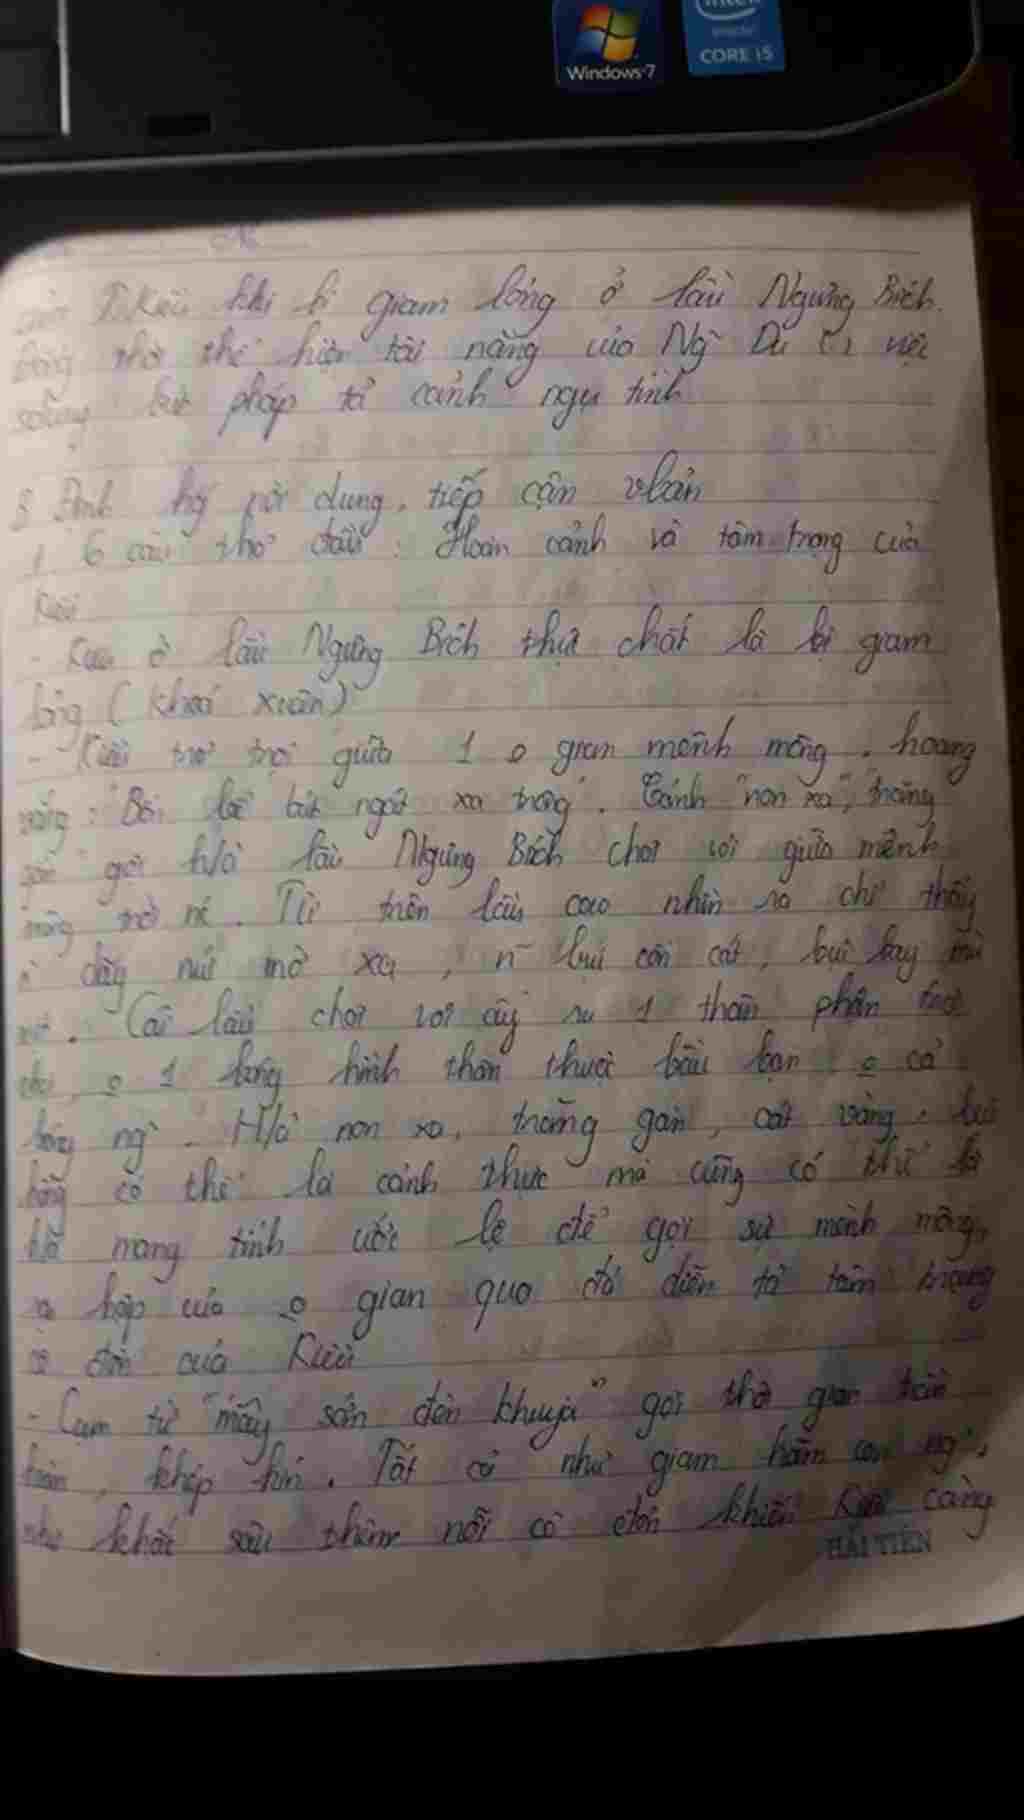 intel
inside
CORE i5
Windows 7
T.Kiều khi bị giam lỏng ở lầu Ngưng Bích.
thời thể hiện tài năng của Ng Du việc
bút pháp tả cảnh ngụ tình
dung, tiếp cận vbản
1 6 câu thơ đầu : Hoàn cảnh và tâm trạng của
Kiều
- Kiều ở lầu Ngưng Bích thực chất là bị giam
lỏng (khoá xuân)
- Kiều trơ trọi giữa 1 o gian mênh mông, hoang
vắng : "Bốn bề bát ngát xa trông". Cảnh "non xa", trăng
gần" gợi h/ả lầu Ngưng Bích chơi vơi giữa mênh
mông trời nc. Từ trên lầu cao nhìn ra chỉ thấy
dãy núi mờ xa, n~ bụi cồn cát, bụi bay mù
mịt. Cái lầu chơi vơi ấy 1 thân phận trơ
trọi, o 1 bóng hình thân thuộc bầu bạn o cả
bóng ng`. H/ả non xa, trăng gần, cát vàng, bụi
hồng có thể là cảnh thực mà cũng có thể là
h/ả mang tính ước lệ để gợi sự mênh mông,
hợp của o gian qua đó diễn tả tâm trạng
cô đơn của Kiều
- Cụm từ "mây sớm đèn khuya" gợi thời gian tuần
hoàn, khép kín. Tất cả như giam hãm con ng`,
như khắc sâu thêm nỗi cô đơn khiến Kiều càng
HẢI TIẾN